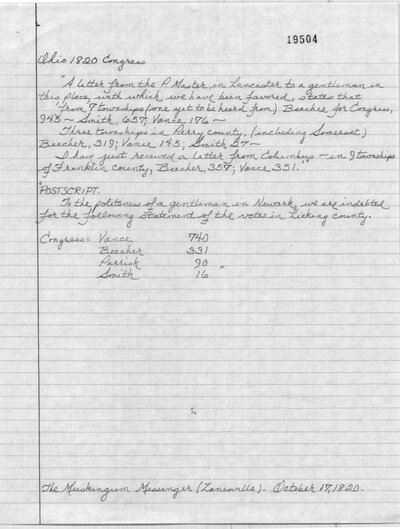 19504
Ohio 1820 Congress
"A letter from the P. Master in Lancaster to a gentleman in
this place, with which we have been favored, states that
from 7 townships (one yet to be heard from) Beecher for Congress,
943 - Smith, 657, Vance, 176 -
Three townships in Perry county, (including Somerset)
Beecher, 319; Vance 145; Smith 27 -
I have just received a letter from Columbus - in 9 townships
of Franklin county, Beecher, 357; Vance 351."
"POSTSCRIPT.
To the politeness of a gentleman in Newark, we are indebted
for the following statement of the votes in Licking county.
Congress: Vance 740
Beecher 331
Parrish 90
Smith 16 "
The Muskingum Messenger (Zanesville). October 17, 1820.